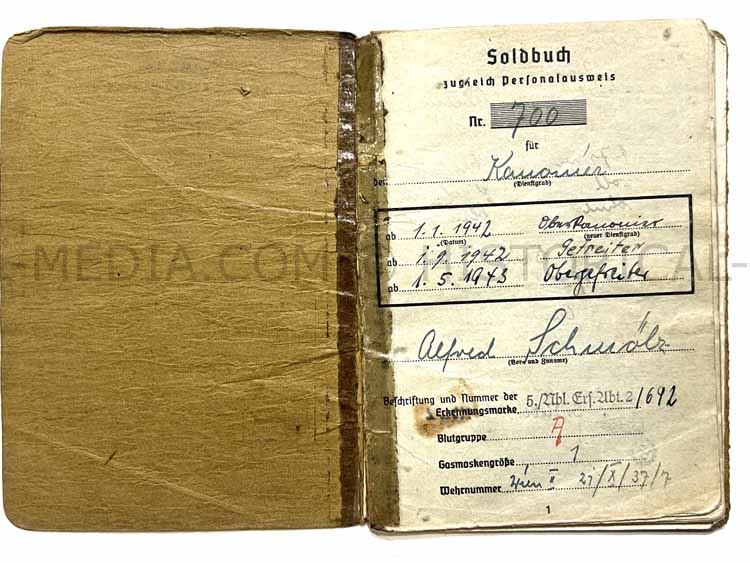 Soldbuch
zugleich Personalausweis
Nr. 700
für
den Kanonier
(Dienstgrad)
ab 1.1.1942 Oberkanonier
(Datum) (neuer Dienstgrad)
ab 1.9.1942 Gefreiter
ab 1.5.1943 Obergefreiter
Alfred Schmölz
(Vor- und Zuname)
Beschriftung und Nummer der
Erkennungsmarke 5./Nbl. Ers. Abt. 2/692
Blutgruppe A
Gasmaskengröße 1
Wehrnummer Wien II 27/X/37/7
1